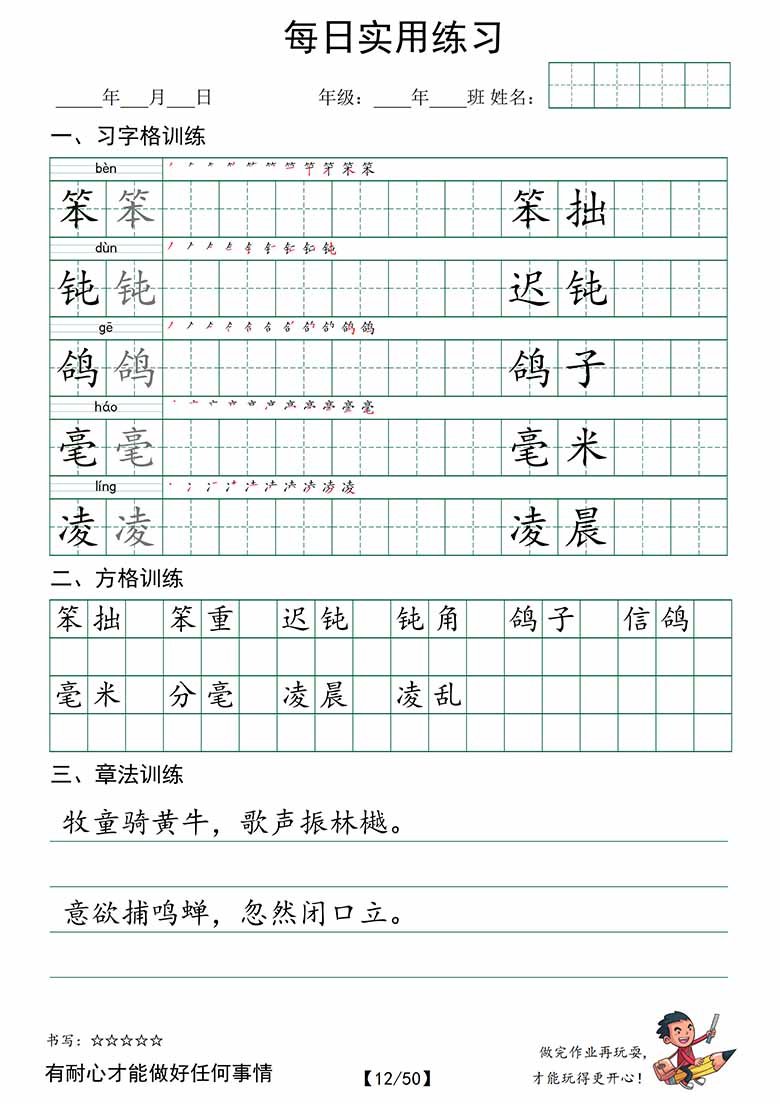 每日实用练习
____年___月___日 年级：____年____班 姓名：
一、习字格训练
bèn
笨 笨 笨 拙
dùn
钝 钝 迟 钝
gē
鸽 鸽 鸽 子
háo
毫 毫 毫 米
líng
凌 凌 凌 晨
二、方格训练
笨拙 笨重 迟钝 钝角 鸽子 信鸽
毫米 分毫 凌晨 凌乱
三、章法训练
牧童骑黄牛，歌声振林樾。
意欲捕鸣蝉，忽然闭口立。
书写：☆☆☆☆☆
有耐心才能做好任何事情
【12/50】
做完作业再玩耍，
才能玩得更开心！